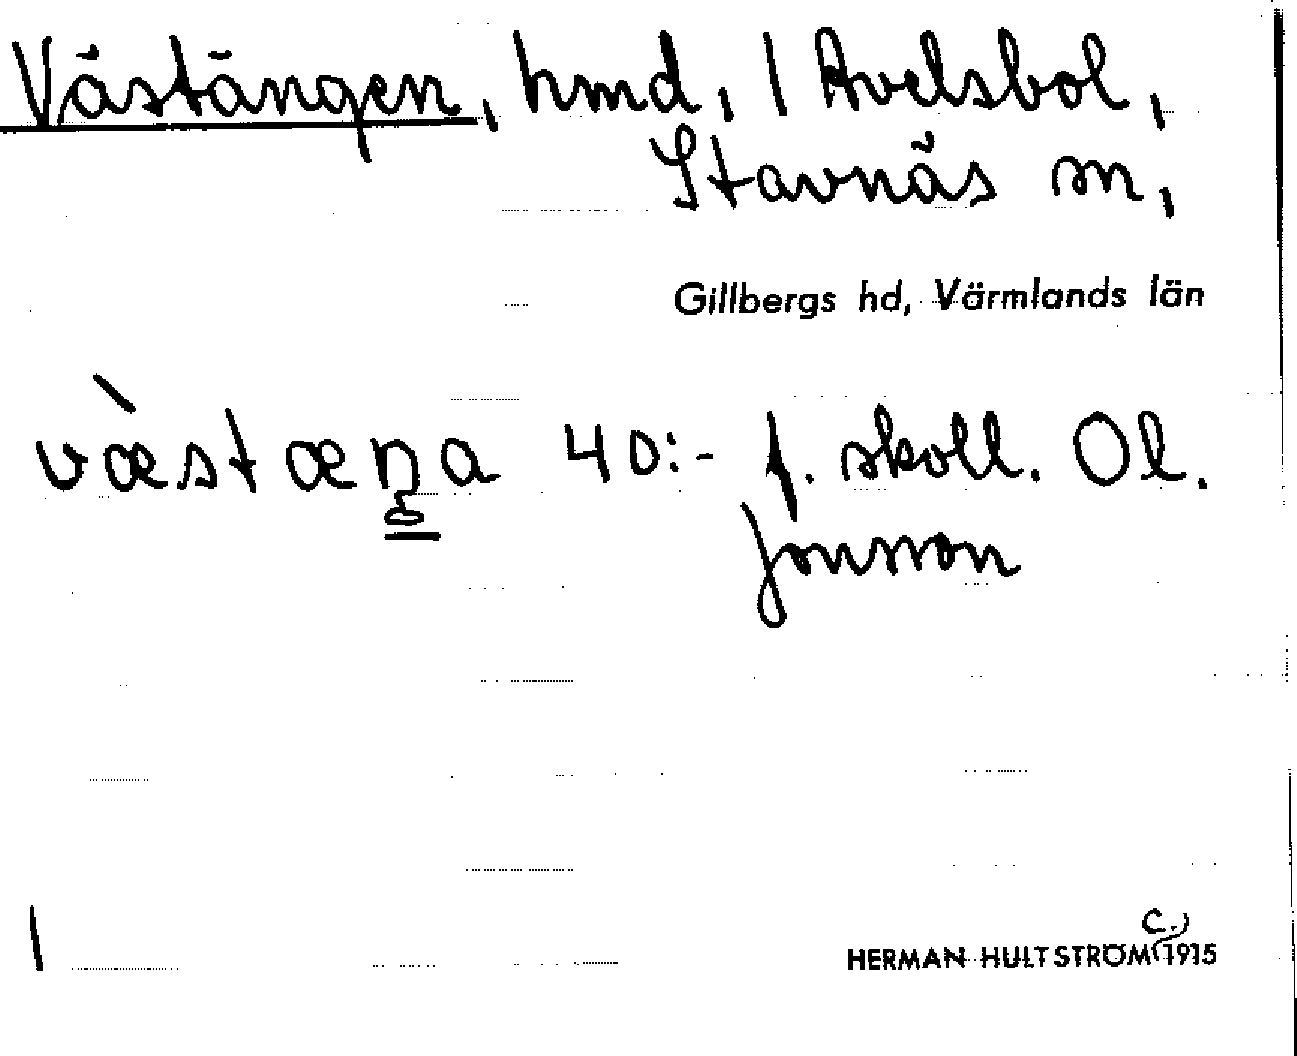 Västängen, hmd, 1 Avelsbol,
Stavnäs sn,
Gillbergs hd, Värmlands län
væ̀stæŋa 40:- f. skoll. Ol.
Jonsson
HERMAN HULTSTRÖM (C.) 1915